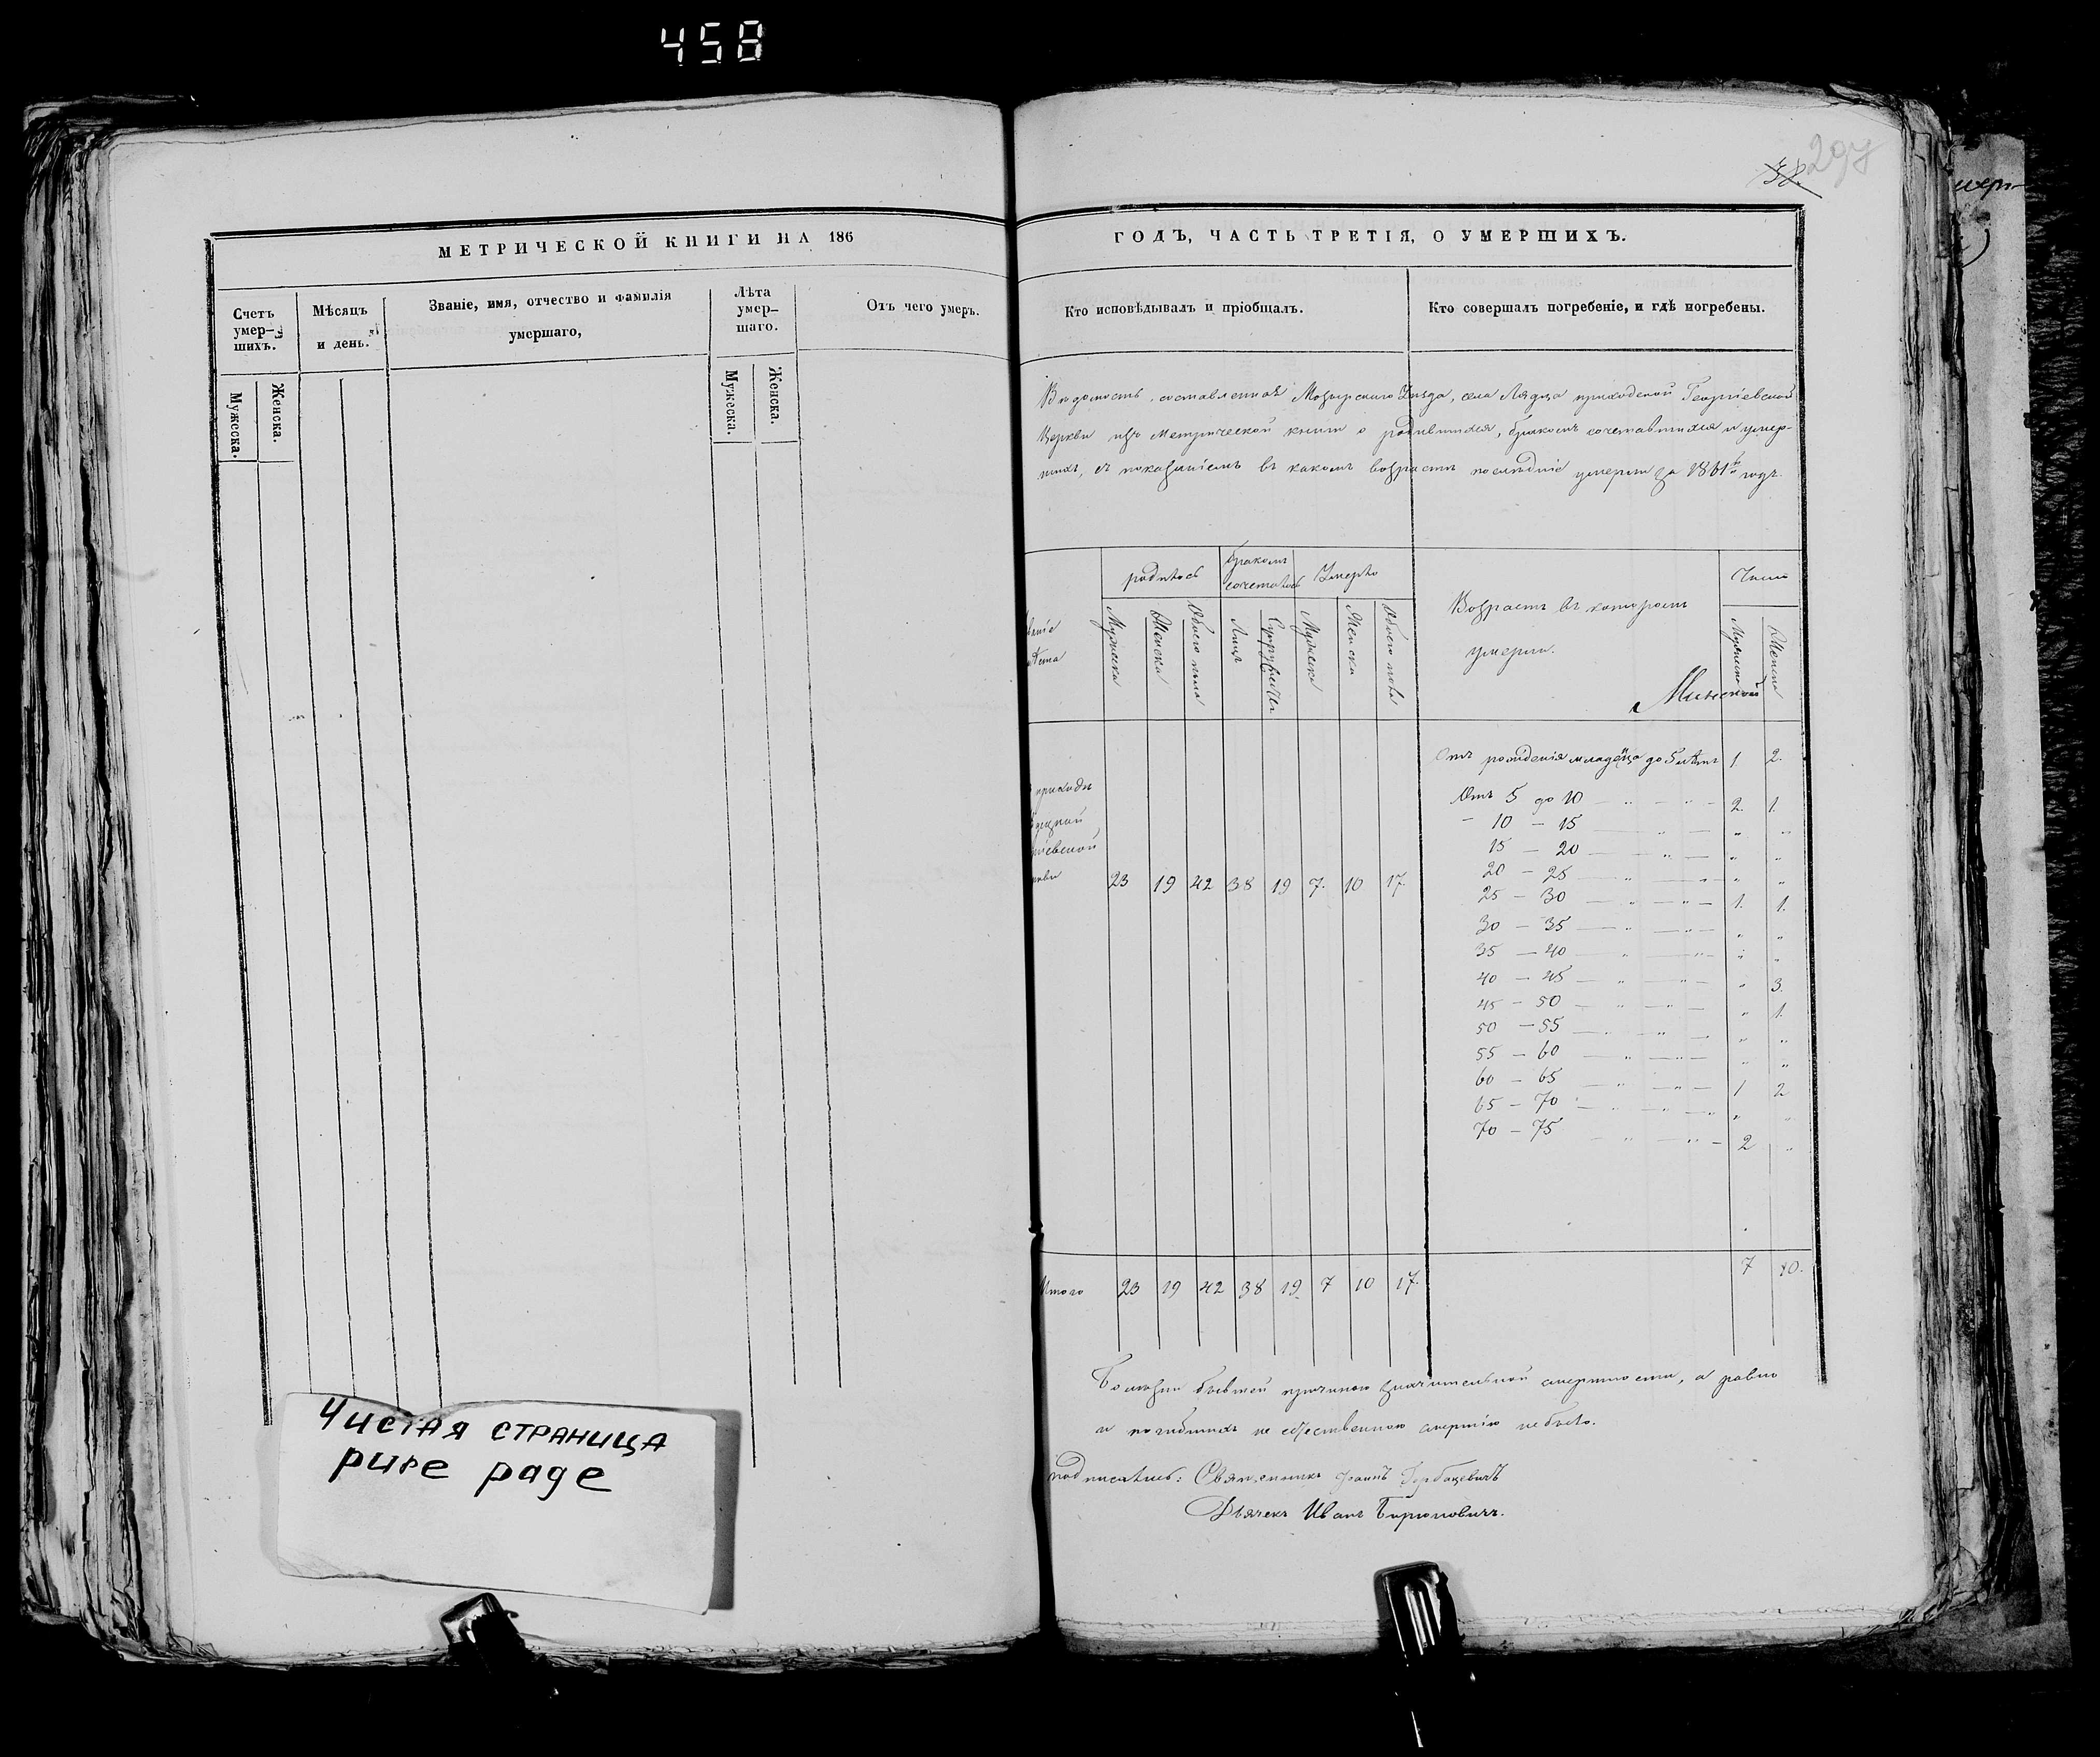 458
297
МЕТРИЧЕСКОЙ КНИГИ НА 186
Счетъ умер-шихъ.
Мужеска.
Женска.
Мѣсяцъ и день.
Званіе, имя, отчество и фамилія умершаго,
Лѣта умер-шаго.
Мужеска.
Женска.
Отъ чего умеръ.
Чистая страница
pure page
ГОДЪ, ЧАСТЬ ТРЕТІЯ, О УМЕРШИХЪ.
Кто исповѣдывалъ и пріобщалъ.
Кто совершалъ погребеніе, и гдѣ погребены.
Вѣдомость, составленная Мозырскаго Уѣзда, села Лядца приходской Георгіевской
Церкви изъ Метрической книги о родившихся, бракомъ сочетавшихся и умер-
шихъ, съ показаніемъ въ какомъ возрастѣ послѣдніе умерли за 1861й годъ.
родилось
бракомъ сочеталось
Умерло
Возрастъ въ которомъ умерли.
Число
Мужеска
Женска
Обоего пола
Лицъ
Супружествъ
Мужеска
Женска
Обоего пола
Мужеска
Женска
Минской
приходѣ
23 19 42 38 19 7. 10 17.
Отъ рожденія младенца до 5 лѣтъ 1. 2.
Отъ 5 до 10 — „ — „ — 2. 1.
— 10 — 15 — „ — „ „
15 — 20 — „ — „ „
20 — 25 — „ — „ „
25 — 30 — „ — „ — 1. 1.
30 — 35 — „ — „ — „ „
35 — 40 — „ — „ — „ „
40 — 45 — „ — „ — „ 3.
45 — 50 — „ — „ — „ 1.
50 — 55 — „ — „ — „ „
55 — 60 — „ — „ — „ „
60 — 65 — „ — „ — 1 2
65 — 70 — „ — „ — „ „
70 — 75 — „ — „ — 2 „
Итого 23 19 42 38 19 7 10 17. 7 10.
Болезни бывшей причиною значительной смертности, а равно
и погибшихъ не естественною смертію не было.
подписались: Священникъ Іоаннъ Горбацевичъ
Дьячекъ Иванъ Бирюковичъ.